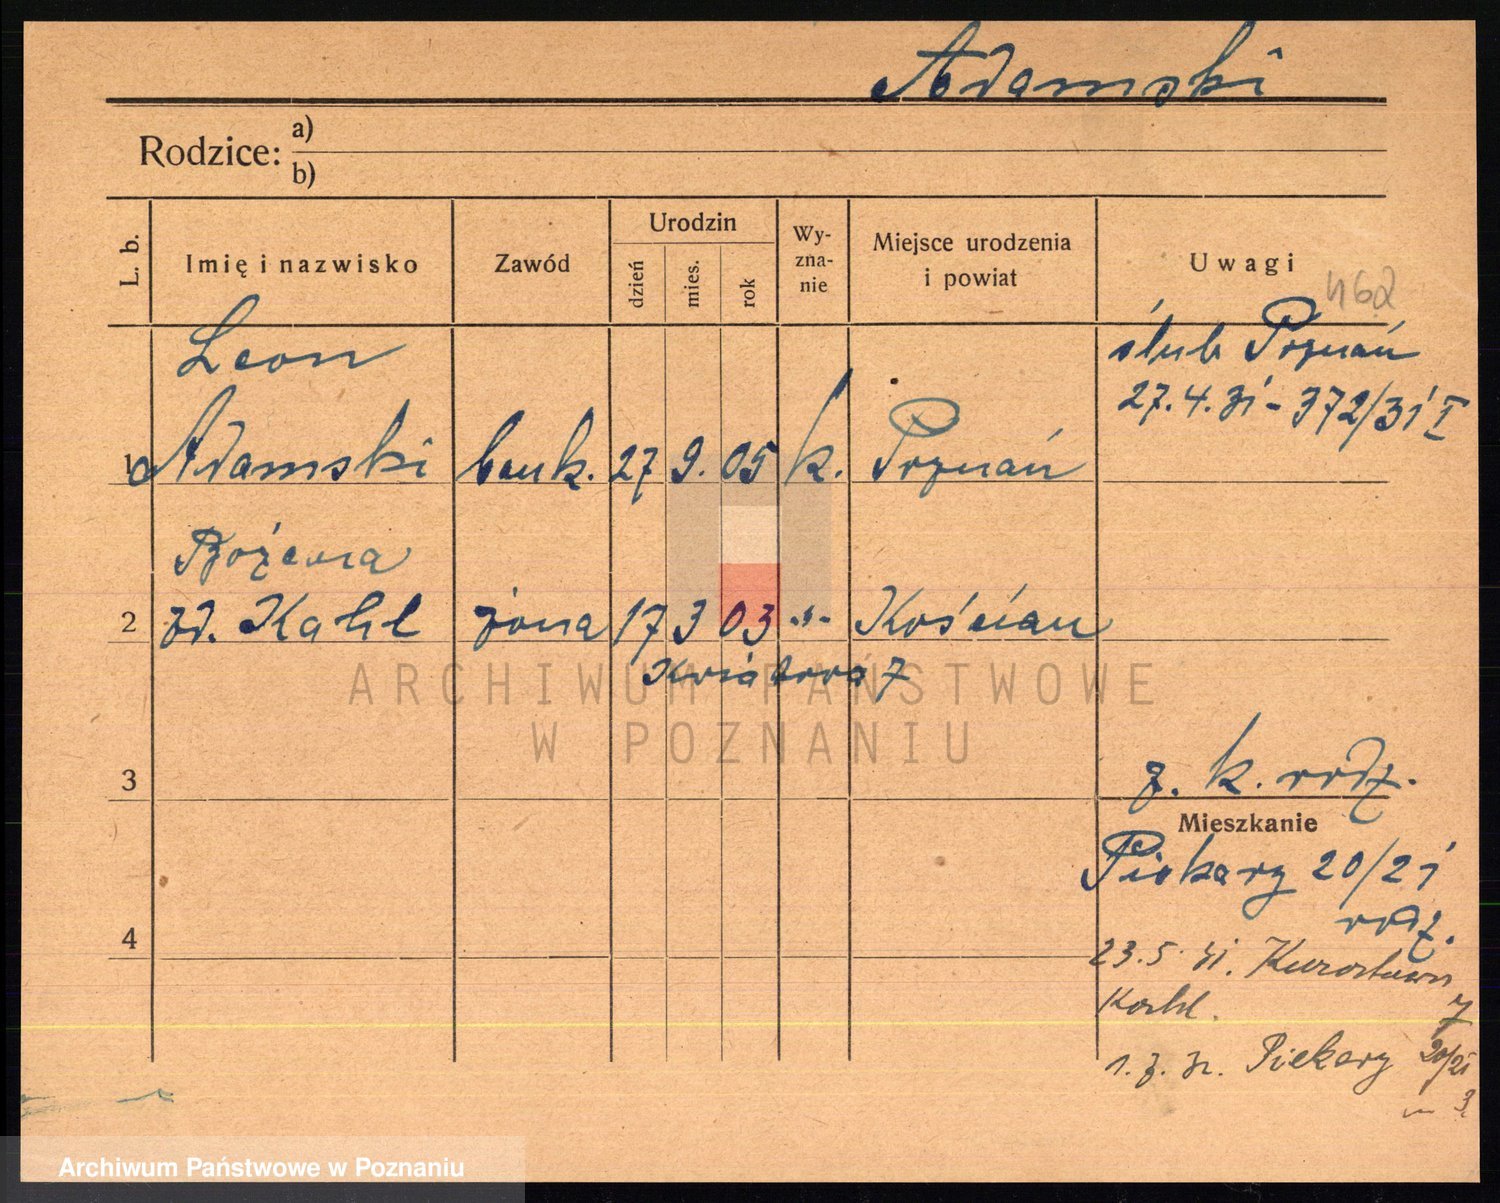 Adamski
Rodzice: a)
b)
L. b.
Imię i nazwisko
Zawód
Urodzin
dzień
mies.
rok
Wy-
zna-
nie
Miejsce urodzenia
i powiat
Uwagi
462
Leon
ślub Poznań
27.4.31 - 372/31 I
1 Adamski bank. 27 9. 05 k. Poznań
Bożena
2 zd. Kahl żona 17 3 03 -"- Kościan
Kwiatowa 7
ARCHIWUM PAŃSTWOWE
W POZNANIU
3
z. k. rodz.
Mieszkanie
Piekary 20/21
rodz.
4
23.5.31.
Kahl. 7
Piekary 20/21
Archiwum Państwowe w Poznaniu